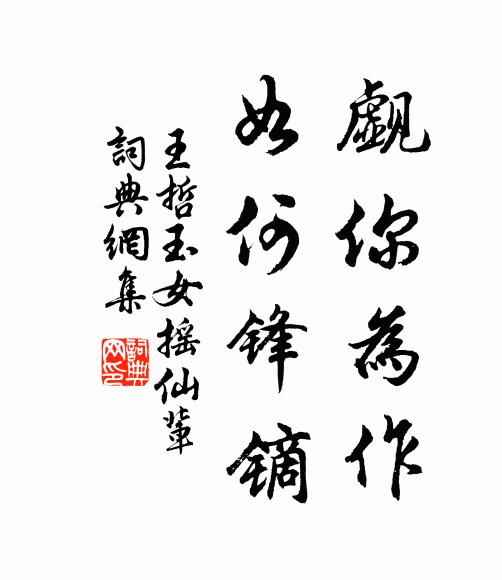 覷你為作
如何鋒鏑
王哲玉女搖仙輩
詞典網集
詞典網印